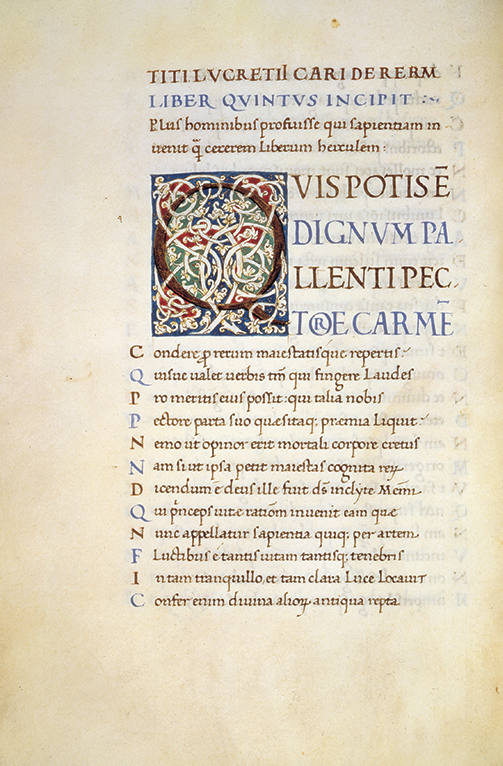 TITI.LVCRETII CARI DE RERM
LIBER QVINTVS INCIPIT :~
Plus hominibus profuisse qui sapientiam in
venit q̃ cererem Liberum herculem:
QVIS POTIS Ē
DIGNVM PA
LLENTI PEC
TORE CARMĒ
Condere ꝓ rerum maiestatisque repertis:
Quisue ualet uerbis tm̄ qui fingere Laudes
Pro meritis eius possit: qui talia nobis
Pectore parta suo quesitaq; premia Liquit:
Nemo ut opinor erit mortali corpore cretus
Nam si ut ipsa petit maiestas cognita reꝝ
Dicendum ē deus ille fuit ds̄ inclyte Mem̄i
Qui pn̄ceps uite ratiōm inuenit eam que
Nūc appellatur sapientia quiq; per artem
Fluctibus e tantis uitam tantisq; tenebris
In tam tranquillo, et tam clara Luce Locauit
Confer enim diuina alioꝝ antiqua repta